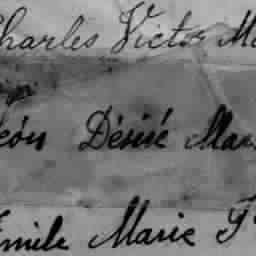 Charles Victor Ma
Léon Désiré Mar
Emile Marie F